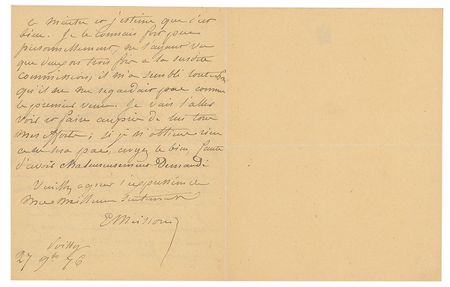 le mérite et j'estime que c'est
bien. Je le connais fort peu
personnellement, ne l'ayant vu
que deux ou trois fois à la susdite
commission, il m'a semblé toutefois
qu'il ne me regardait pas comme
le premier venu. Je vais l'aller
voir et faire auprès de lui tous
mes efforts, si je n'obtiens rien
ce ne sera pas, croyez le bien, faute
d'avoir chaleureusement demandé
Veuillez agréer l'expression de
mes meilleurs sentiments
EMeissonier
Poissy
27 9bre 76